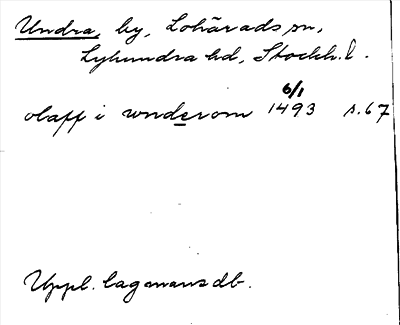 Undra, by, Lohärads sn,
Lyhundra hd, Stockh. l.
6/1
olaff i wnderom 1493 s. 67
Uppl. lagmansdb.